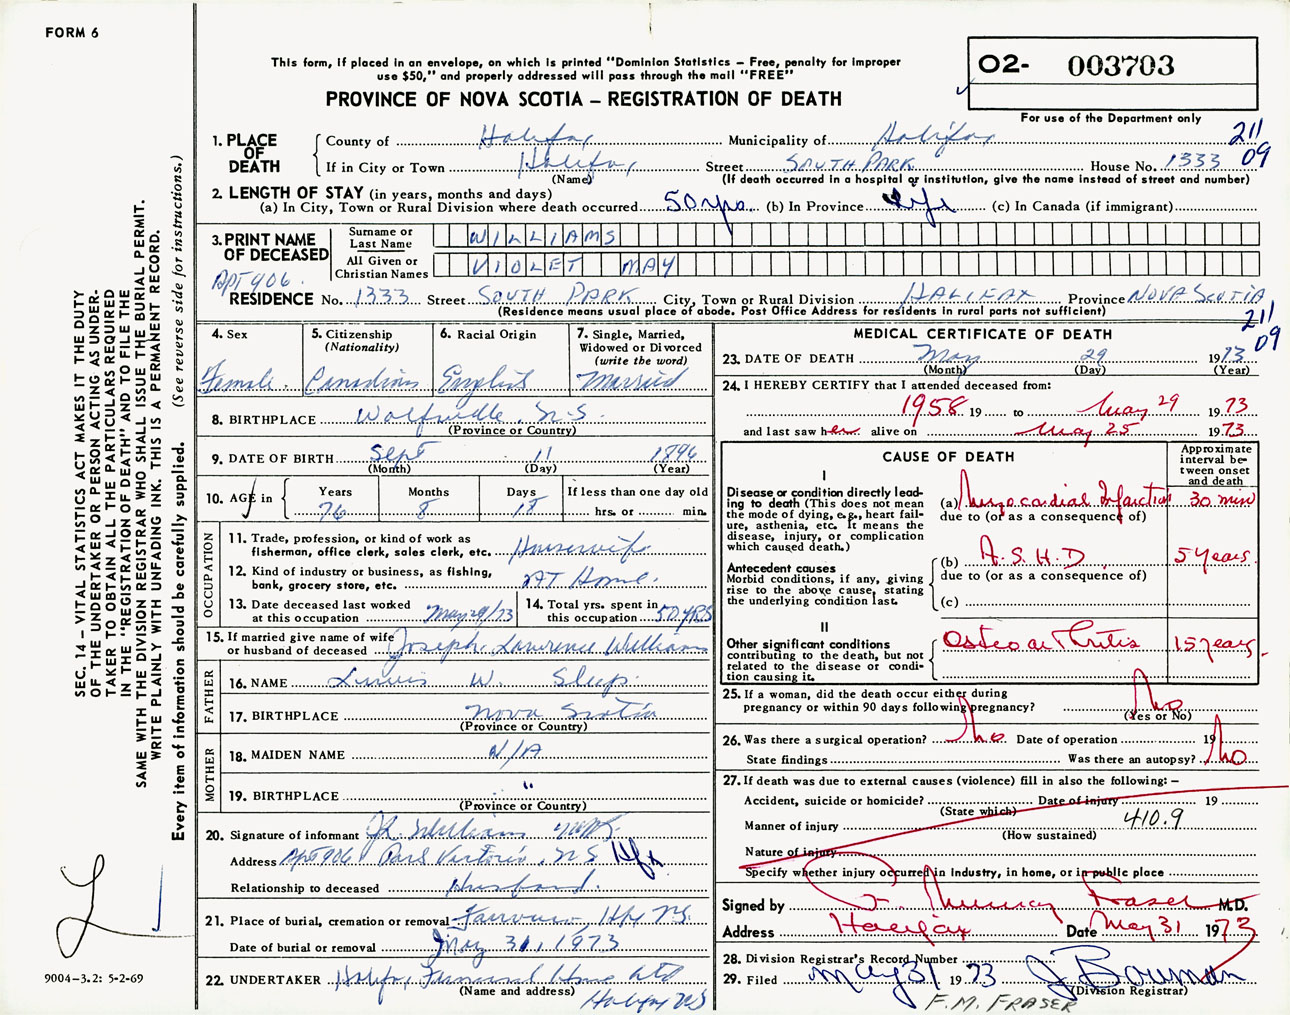 FORM 6
This form, if placed in an envelope, on which is printed "Dominion Statistics – Free, penalty for improper
use $50," and properly addressed will pass through the mail "FREE"
PROVINCE OF NOVA SCOTIA – REGISTRATION OF DEATH
O2- 003703
For use of the Department only
211
09
1. PLACE OF DEATH
County of Halifax Municipality of Halifax
If in City or Town Halifax Street SOUTH PARK House No. 1333
(Name) (If death occurred in a hospital or institution, give the name instead of street and number)
2. LENGTH OF STAY (in years, months and days)
(a) In City, Town or Rural Division where death occurred 50 yrs. (b) In Province life (c) In Canada (if immigrant)
3. PRINT NAME OF DECEASED
Surname or Last Name WILLIAMS
All Given or Christian Names VIOLET MAY
APT 906.
RESIDENCE No. 1333 Street SOUTH PARK City, Town or Rural Division HALIFAX Province NOVA SCOTIA
(Residence means usual place of abode. Post Office Address for residents in rural parts not sufficient)
211
09
4. Sex
Female.
5. Citizenship
(Nationality)
Canadian
6. Racial Origin
English
7. Single, Married,
Widowed or Divorced
(write the word)
Married
8. BIRTHPLACE Wolfville, N.S.
(Province or Country)
9. DATE OF BIRTH Sept 11 1896
(Month) (Day) (Year)
10. AGE in
Years Months Days If less than one day old
76 8 18 hrs. or min.
OCCUPATION
11. Trade, profession, or kind of work as
fisherman, office clerk, sales clerk, etc. Housewife
12. Kind of industry or business, as fishing,
bank, grocery store, etc. AT Home.
13. Date deceased last worked
at this occupation May 29/73
14. Total yrs. spent in
this occupation 50 YRS
15. If married give name of wife
or husband of deceased Joseph Lawrence Williams
FATHER
16. NAME W. Sleep
17. BIRTHPLACE Nova Scotia
(Province or Country)
MOTHER
18. MAIDEN NAME N/A
19. BIRTHPLACE "
(Province or Country)
20. Signature of informant Williams
Address Apt 906 Park Victoria, N.S Hfx
Relationship to deceased Husband.
21. Place of burial, cremation or removal Fairview, Hfx N.S.
Date of burial or removal May 31, 1973
22. UNDERTAKER Halifax Funeral Home Ltd
(Name and address)
Halifax NS
MEDICAL CERTIFICATE OF DEATH
23. DATE OF DEATH May 29 1973
(Month) (Day) (Year)
24. I HEREBY CERTIFY that I attended deceased from:
1958 19 to May 29 1973
and last saw her alive on May 25 1973
CAUSE OF DEATH
Approximate interval between onset and death
I
Disease or condition directly leading to death (This does not
mean the mode of dying, e.g., heart failure, asthenia, etc. It means the
disease, injury, or complication
which caused death.)
(a) Myocardial Infarction 30 min
due to (or as a consequence of)
Antecedent causes
Morbid conditions, if any, giving
rise to the above cause, stating
the underlying condition last.
(b) A.S.H.D. 5 years.
due to (or as a consequence of)
(c)
II
Other significant conditions
contributing to the death, but not
related to the disease or condition causing it.
Osteoarthritis 15 years.
25. If a woman, did the death occur either during
pregnancy or within 90 days following pregnancy? No
(Yes or No)
26. Was there a surgical operation? No Date of operation 19
State findings Was there an autopsy? No
27. If death was due to external causes (violence) fill in also the following: –
Accident, suicide or homicide? Date of injury 19
(State which)
Manner of injury 410.9
(How sustained)
Nature of injury
Specify whether injury occurred in industry, in home, or in public place
Signed by F. Murray Fraser M.D.
Address Halifax Date May 31 1973
28. Division Registrar's Record Number
29. Filed May 31 1973 J Bowman
(Division Registrar)
F.M. FRASER
SEC. 14 – VITAL STATISTICS ACT MAKES IT THE DUTY
OF THE UNDERTAKER OR PERSON ACTING AS UNDERTAKER
TO OBTAIN ALL THE PARTICULARS REQUIRED
IN THE "REGISTRATION OF DEATH" AND TO FILE THE
SAME WITH THE DIVISION REGISTRAR WHO SHALL ISSUE THE BURIAL PERMIT.
WRITE PLAINLY WITH UNFADING INK. THIS IS A PERMANENT RECORD.
Every item of information should be carefully supplied. (See reverse side for instructions.)
9004–3.2: 5-2-69